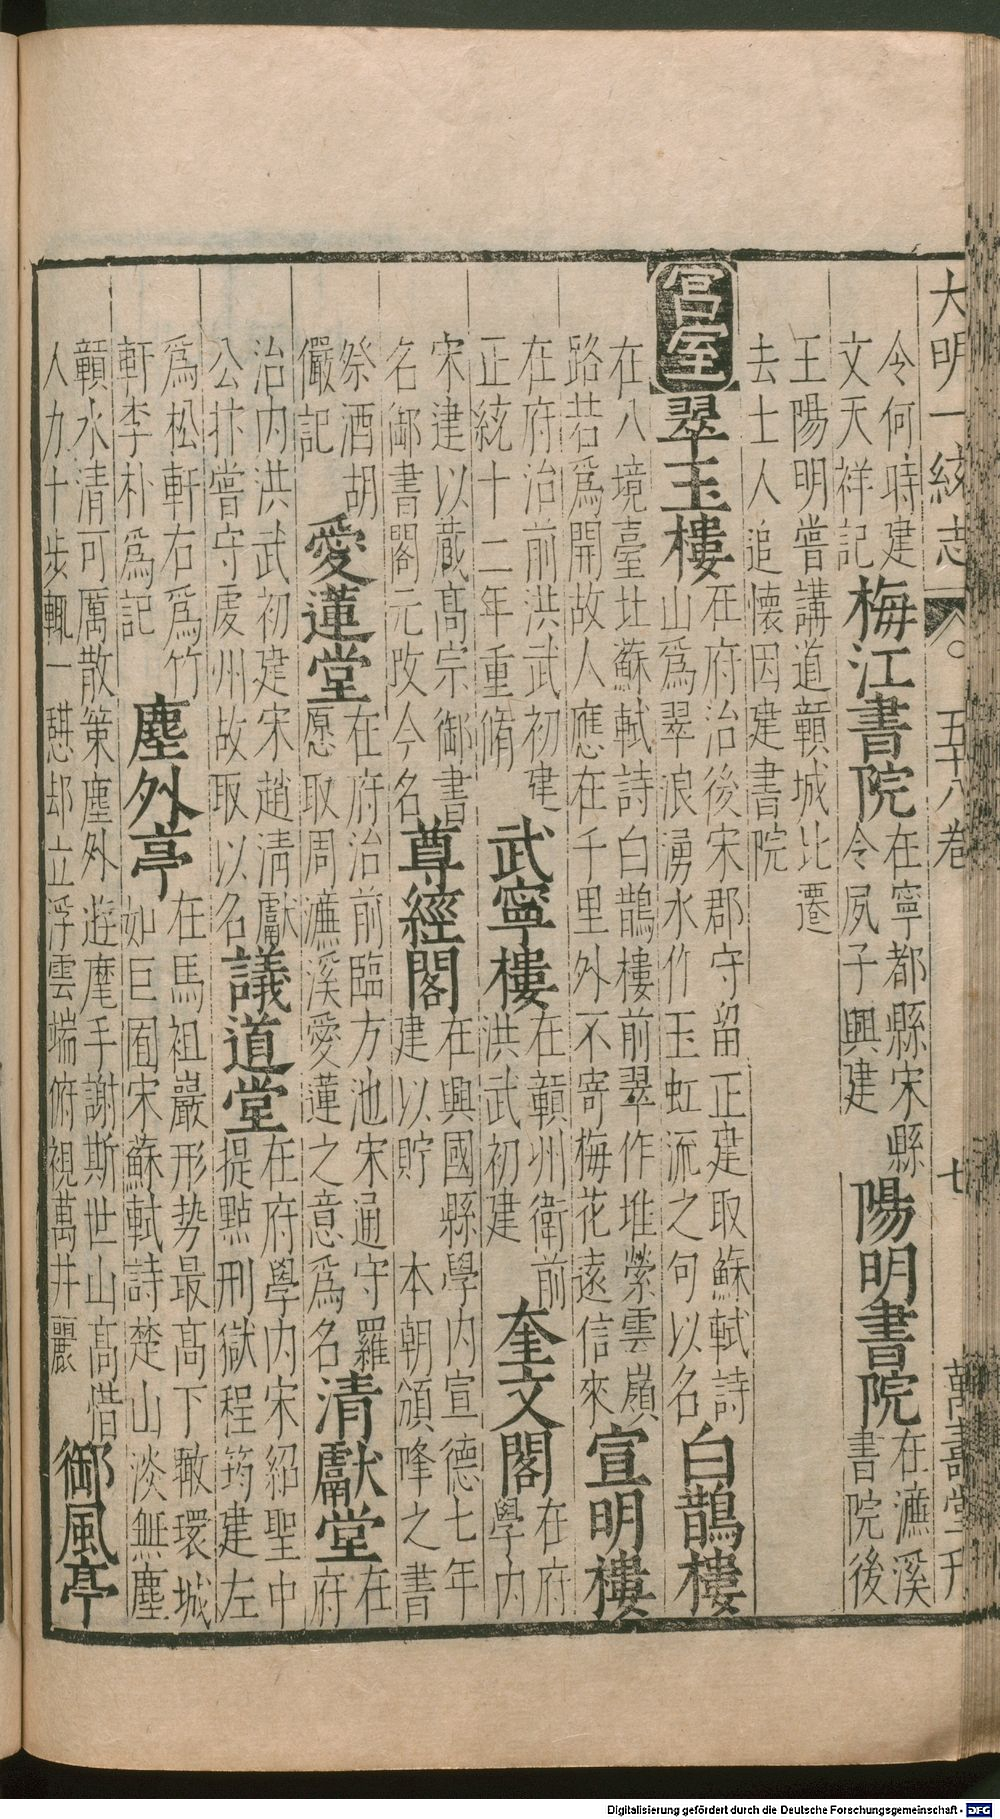 大明一統志 五十八卷 七 萬壽堂刊
令何時建
文天祥記
梅江書院
在寧都縣宋縣
令夙子興建
陽明書院
在濂溪
書院後
王陽明嘗講道贛城比遷
去士人追懷因建書院
宮室
翠玉樓
在府治後宋郡守留正建取蘇軾詩
山為翠浪湧水作玉虹流之句以名
白鵲樓
在八境臺北蘇軾詩白鵲樓前翠作堆縈雲嶺
路若為開故人應在千里外不寄梅花遠信來
宣明樓
在府治前洪武初建
正統十二年重脩
武寧樓
在贛州衛前
洪武初建
奎文閣
在府
學內
宋建以藏高宗御書
名御書閣元改今名
尊經閣
在興國縣學內宣德七年
建以貯 本朝頒降之書
祭酒胡
儼記
愛蓮堂
在府治前臨方池宋通守羅
愿取周濂溪愛蓮之意為名
清獻堂
在
府
治內洪武初建宋趙清獻
公抃嘗守虔州故取以名
議道堂
在府學內宋紹聖中
提點刑獄程筠建左
為松軒右為竹
軒李朴為記
塵外亭
在馬祖巖形势最高下瞰環城
如巨囿宋蘇軾詩楚山淡無塵
贛水清可厲散策塵外遊麾手謝斯世山高惜
人力十步輒一憇却立浮雲端俯視萬井麗
御風亭
Digitalisierung gefördert durch die Deutsche Forschungsgemeinschaft - DFG